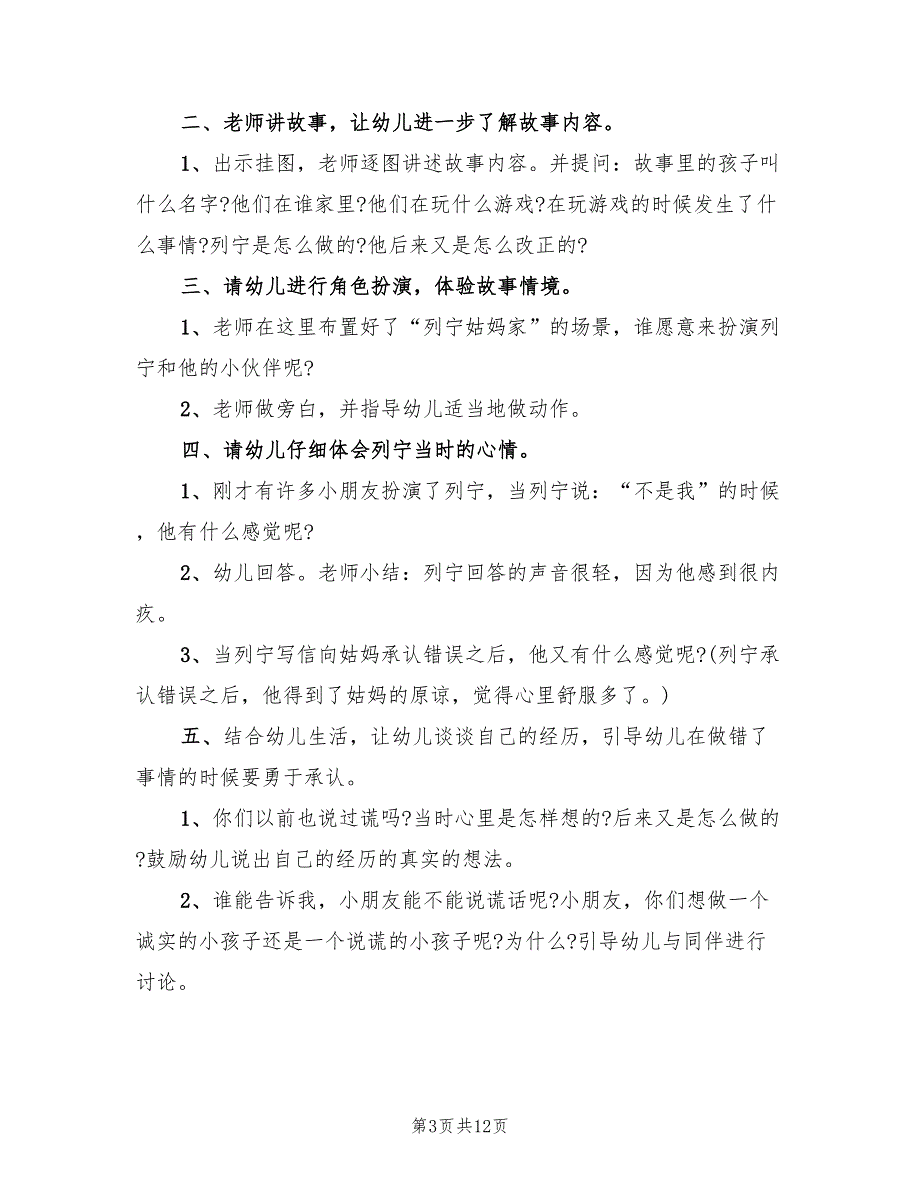 二、老师讲故事，让幼儿进一步了解故事内容。
1、出示挂图，老师逐图讲述故事内容。并提问：故事里的孩子叫
什么名字?他们在谁家里?他们在玩什么游戏?在玩游戏的时候发生了什
么事情?列宁是怎么做的?他后来又是怎么改正的?
三、请幼儿进行角色扮演，体验故事情境。
1、老师在这里布置好了“列宁姑妈家”的场景，谁愿意来扮演列
宁和他的小伙伴呢?
2、老师做旁白，并指导幼儿适当地做动作。
四、请幼儿仔细体会列宁当时的心情。
1、刚才有许多小朋友扮演了列宁，当列宁说：“不是我”的时候
，他有什么感觉呢?
2、幼儿回答。老师小结：列宁回答的声音很轻，因为他感到很内
疚。
3、当列宁写信向姑妈承认错误之后，他又有什么感觉呢?(列宁承
认错误之后，他得到了姑妈的原谅，觉得心里舒服多了。)
五、结合幼儿生活，让幼儿谈谈自己的经历，引导幼儿在做错了
事情的时候要勇于承认。
1、你们以前也说过谎吗?当时心里是怎样想的?后来又是怎么做的
?鼓励幼儿说出自己的经历的真实的想法。
2、谁能告诉我，小朋友能不能说谎话呢?小朋友，你们想做一个
诚实的小孩子还是一个说谎的小孩子呢?为什么?引导幼儿与同伴进行
讨论。
第3页共12页